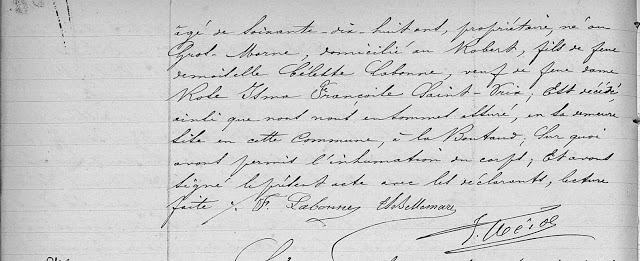 âgé de soixante-dix-huit ans, propriétaire, né au
Gros-Morne, domicilié au Robert, fils de feue
demoiselle Céleste Labonne, veuf de feue dame
Rose Isma Françoise Saint-Prix, Est décédé,
ainsi que nous nous en sommes assuré, en sa demeure
sise en cette Commune, à la Boutaud; Sur quoi
avons permis l'inhumation du corps; Et avons
signé le présent acte avec les déclarants, lecture
faite ./. F. Labonne